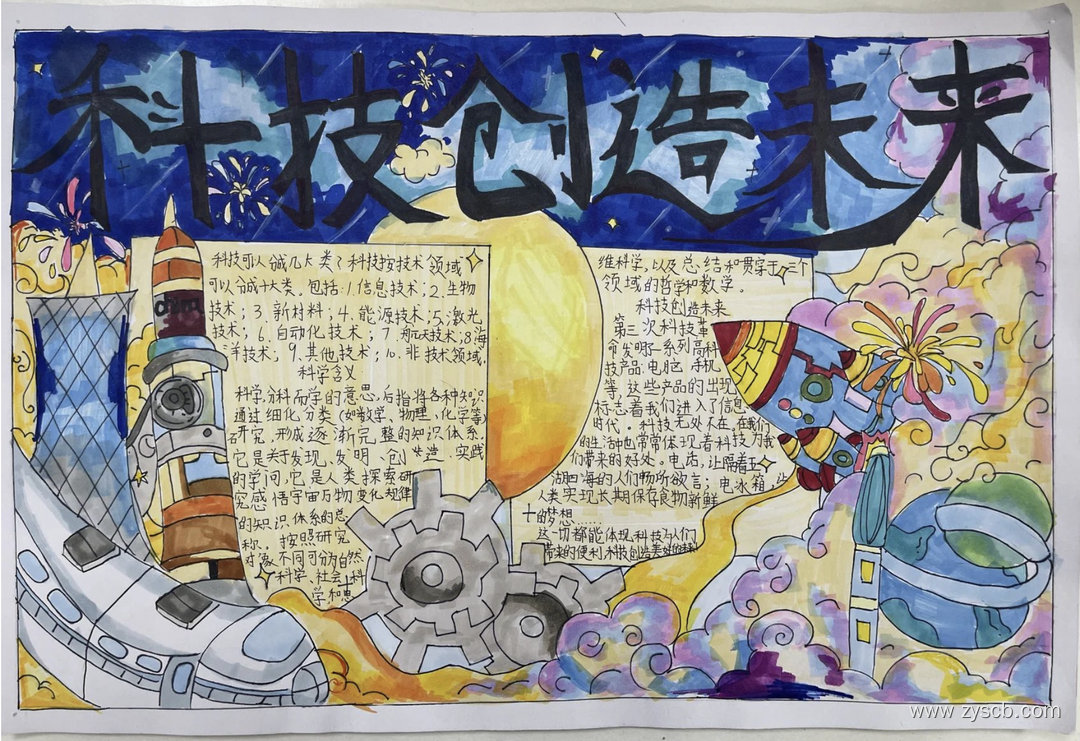 科技创造未来
科技可以分成几大类？科技按技术领域
可以分成十大类。包括：1.信息技术；2.生物
技术；3.新材料；4.能源技术；5.激光
技术；6.自动化技术；7.航天技术；8海
洋技术；9.其他技术；10.非技术领域.
科学含义
科学,分科而学的意思,后指将各种知识
通过细化分类(如数学、物理、化学等)
研究,形成逐渐完整的知识体系.
它是关于发现、发明、创造、实践
的学问,它是人类探索研
究感悟宇宙万物变化规律
的知识体系的总
称。按照研究
对象不同可分为自然
科学、社会科
学和思
维科学,以及总结和贯穿于三个
领域的哲学和数学。
科技创造未来
第三次科技革
命发明了一系列高科
技产品:电脑、手机
等,这些产品的出现
标志着我们进入了信息
时代。科技无处不在,在我们
的生活中也常常体现着科技为我
们带来的好处。电话,让隔着五
湖四海的人们畅所欲言；电冰箱,让
人类实现长期保存食物新鲜
的梦想……
这一切都能体现科技与人们
带来的便利,科技创造美好的未来
www.zyscb.com